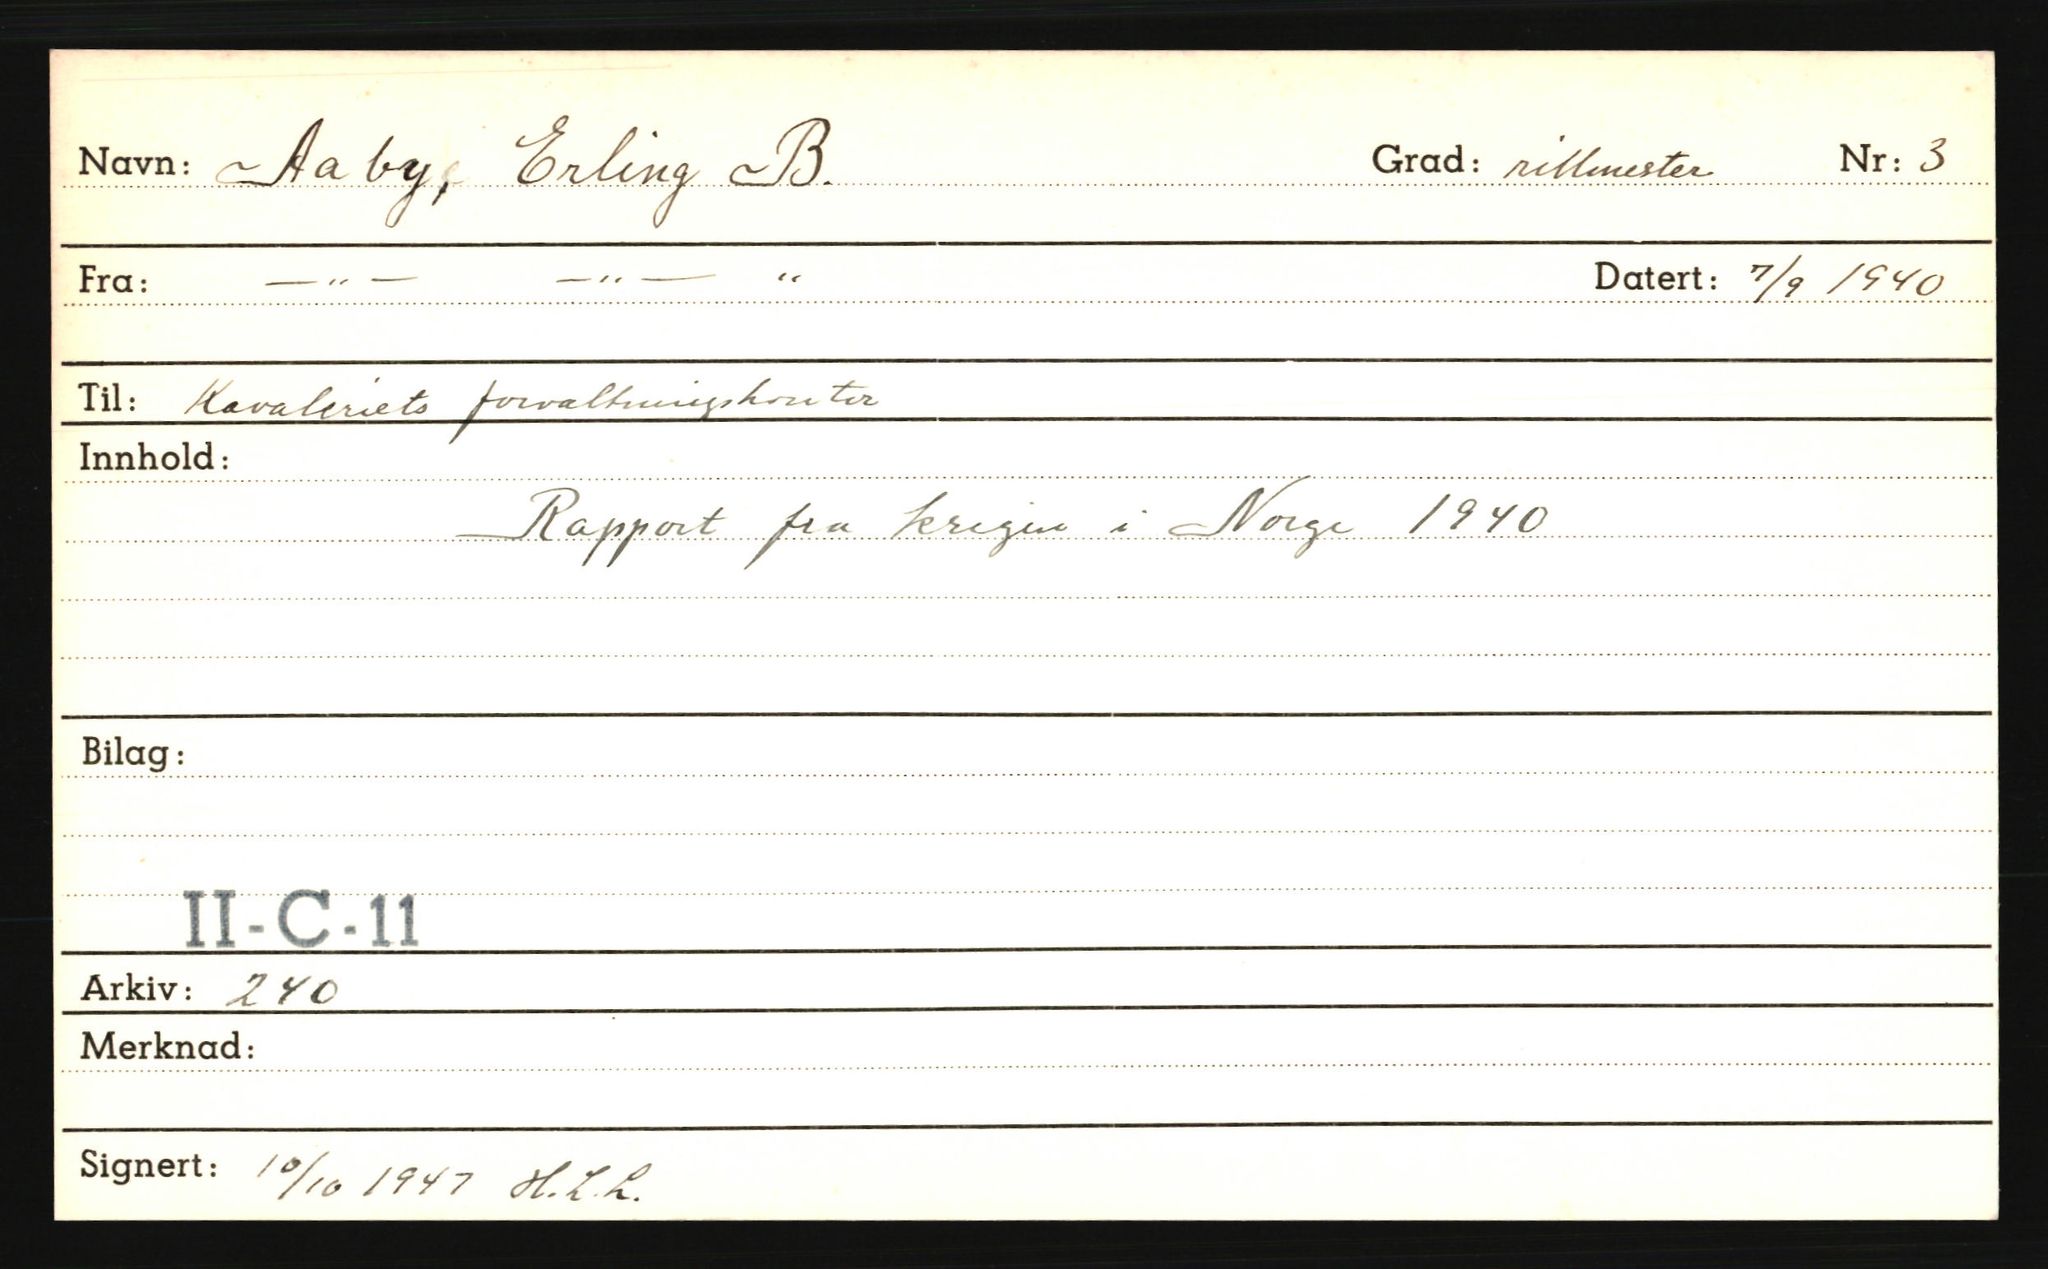 Navn: Aaby, Erling B. Grad: rittmester Nr: 3
Fra: —〃— —〃— 〃 Datert: 7/9 1940
Til: Kavaleriets forvaltningskontor
Innhold:
Rapport fra krigen i Norge 1940
Bilag:
II-C-11
Arkiv: 240
Merknad:
Signert: 10/10 1947 H.L.L.